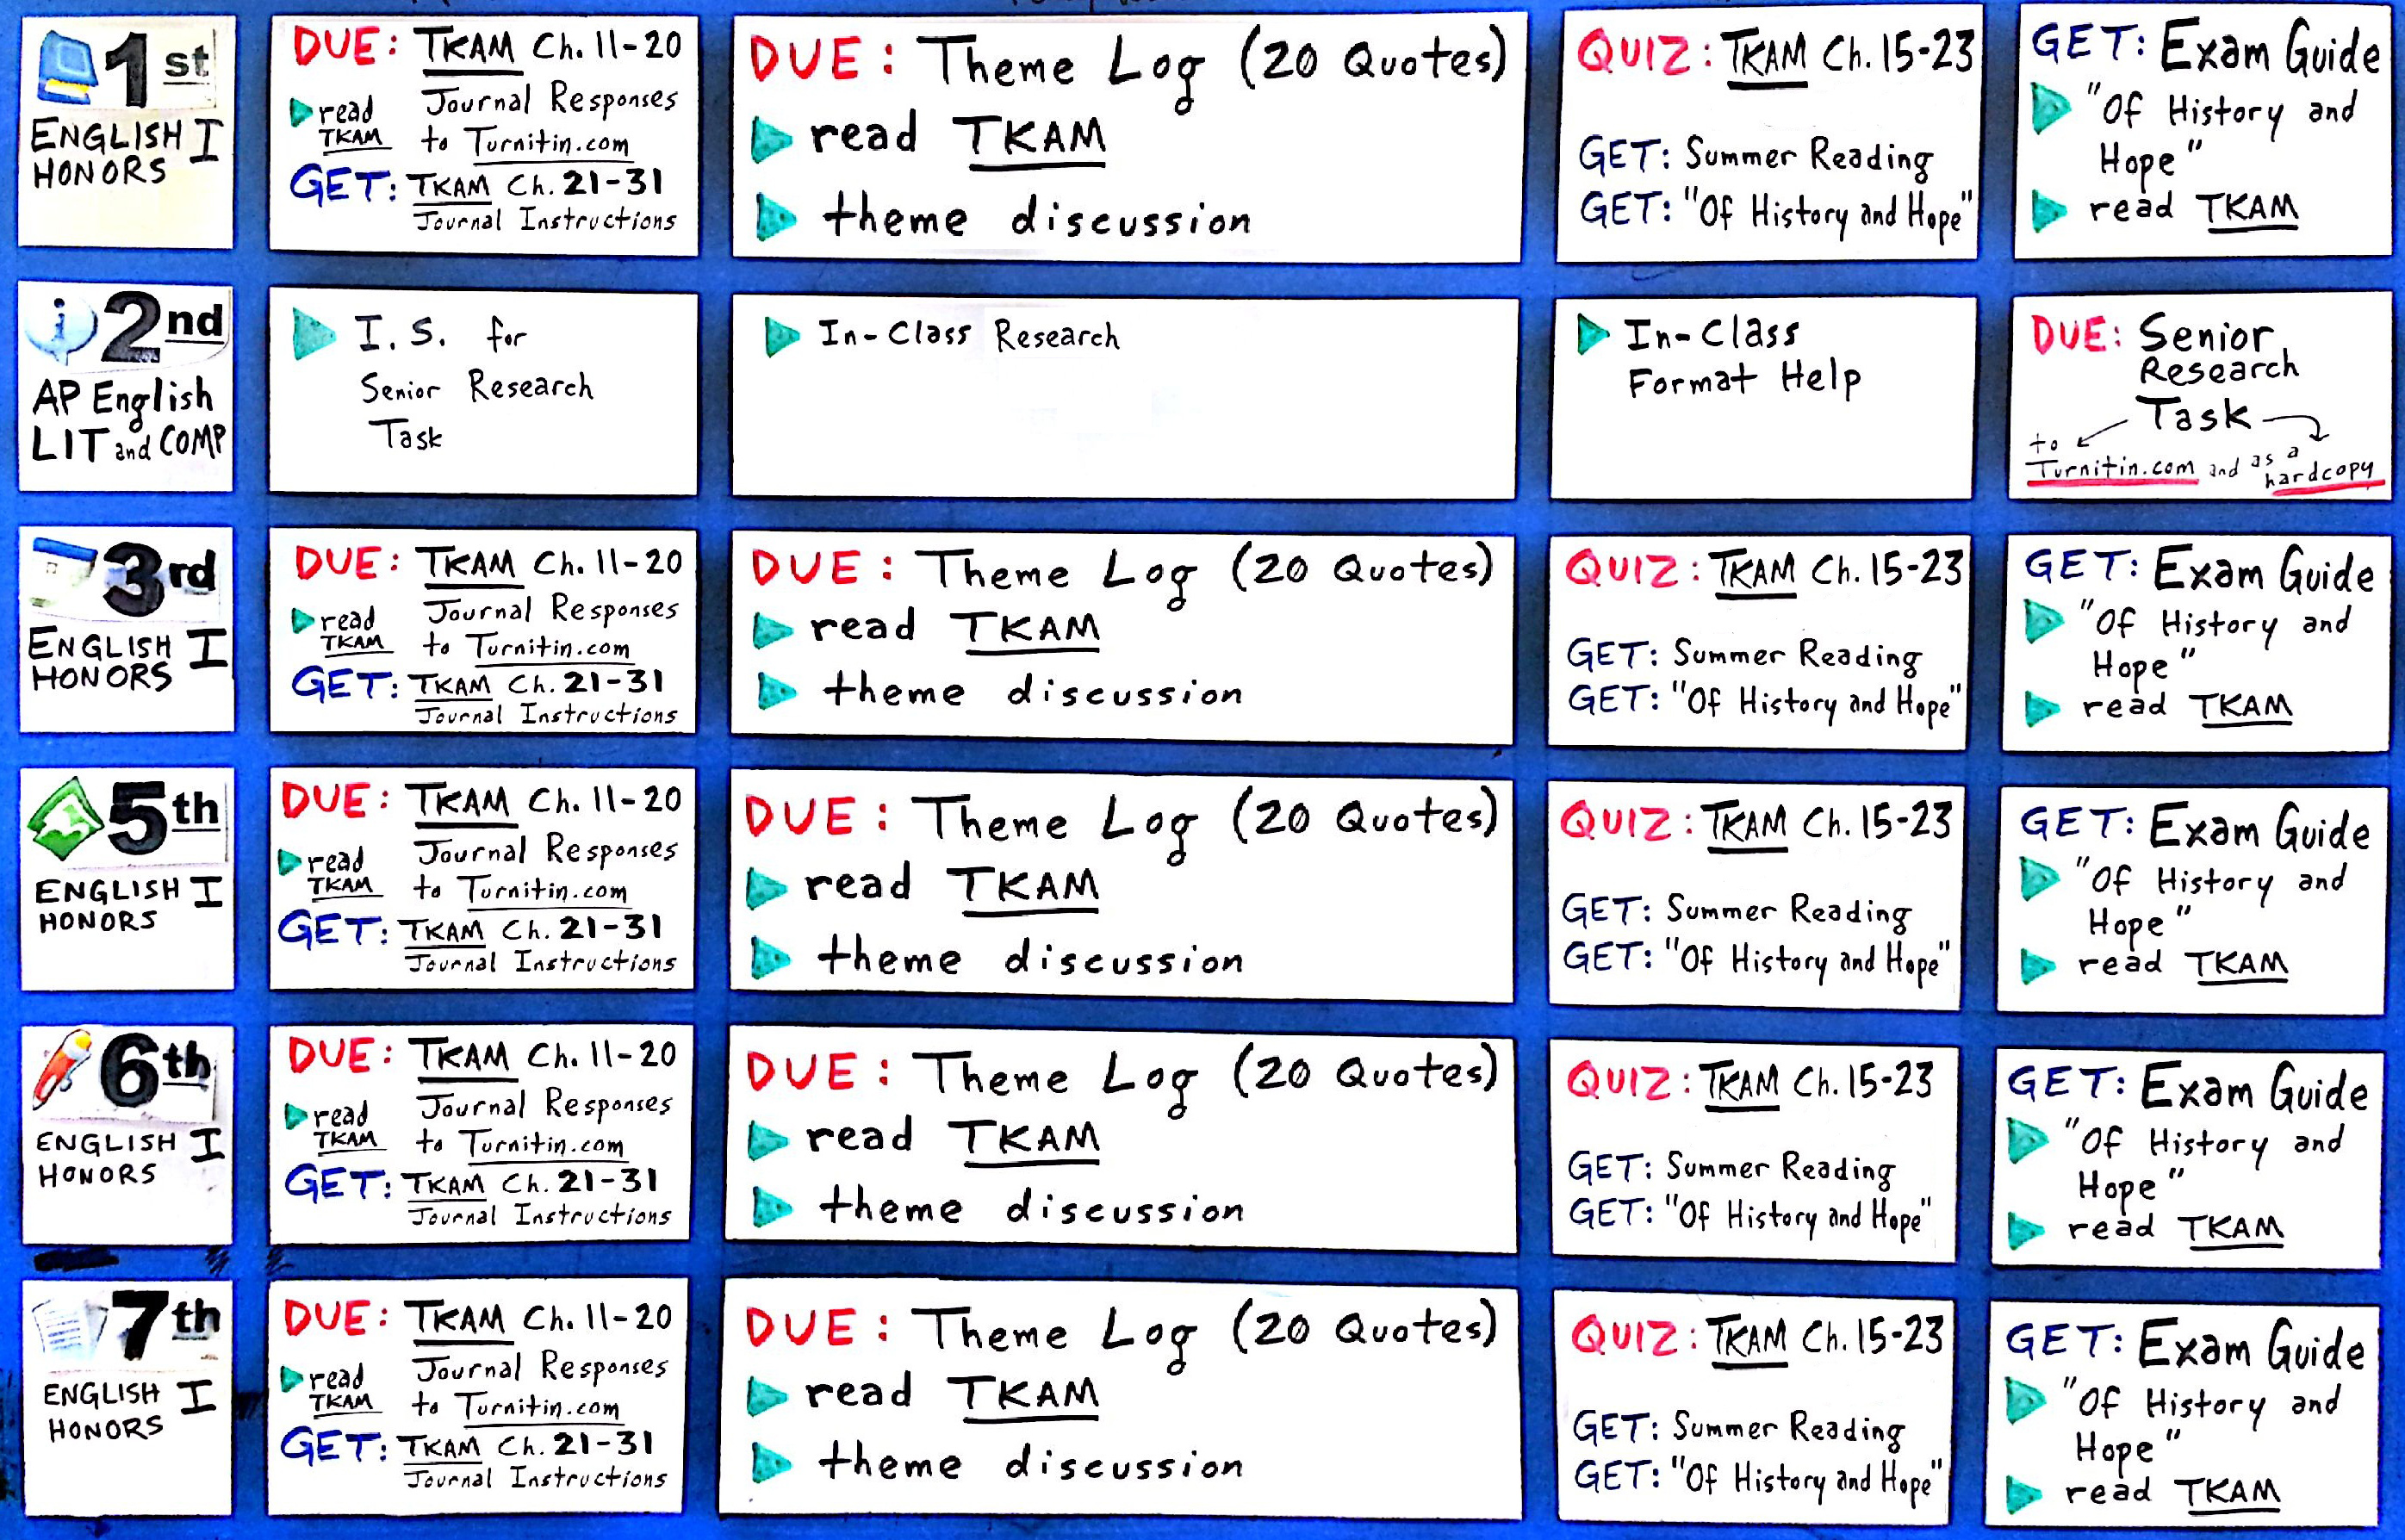 1st
ENGLISH I
HONORS
DUE: TKAM Ch. 11-20
Journal Responses
to Turnitin.com
read
TKAM
GET: TKAM Ch. 21-31
Journal Instructions
DUE: Theme Log (20 Quotes)
read TKAM
theme discussion
QUIZ: TKAM Ch. 15-23
GET: Summer Reading
GET: "Of History and Hope"
GET: Exam Guide
"Of History and
Hope"
read TKAM
2nd
AP English
LIT and COMP
I. S. for
Senior Research
Task
In-Class Research
In-Class
Format Help
DUE: Senior
Research
Task
to
Turnitin.com and as a
hardcopy
3rd
ENGLISH I
HONORS
DUE: TKAM Ch. 11-20
Journal Responses
to Turnitin.com
read
TKAM
GET: TKAM Ch. 21-31
Journal Instructions
DUE: Theme Log (20 Quotes)
read TKAM
theme discussion
QUIZ: TKAM Ch. 15-23
GET: Summer Reading
GET: "Of History and Hope"
GET: Exam Guide
"Of History and
Hope"
read TKAM
5th
ENGLISH I
HONORS
DUE: TKAM Ch. 11-20
Journal Responses
to Turnitin.com
read
TKAM
GET: TKAM Ch. 21-31
Journal Instructions
DUE: Theme Log (20 Quotes)
read TKAM
theme discussion
QUIZ: TKAM Ch. 15-23
GET: Summer Reading
GET: "Of History and Hope"
GET: Exam Guide
"Of History and
Hope"
read TKAM
6th
ENGLISH I
HONORS
DUE: TKAM Ch. 11-20
Journal Responses
to Turnitin.com
read
TKAM
GET: TKAM Ch. 21-31
Journal Instructions
DUE: Theme Log (20 Quotes)
read TKAM
theme discussion
QUIZ: TKAM Ch. 15-23
GET: Summer Reading
GET: "Of History and Hope"
GET: Exam Guide
"Of History and
Hope"
read TKAM
7th
ENGLISH I
HONORS
DUE: TKAM Ch. 11-20
Journal Responses
to Turnitin.com
read
TKAM
GET: TKAM Ch. 21-31
Journal Instructions
DUE: Theme Log (20 Quotes)
read TKAM
theme discussion
QUIZ: TKAM Ch. 15-23
GET: Summer Reading
GET: "Of History and Hope"
GET: Exam Guide
"Of History and
Hope"
read TKAM